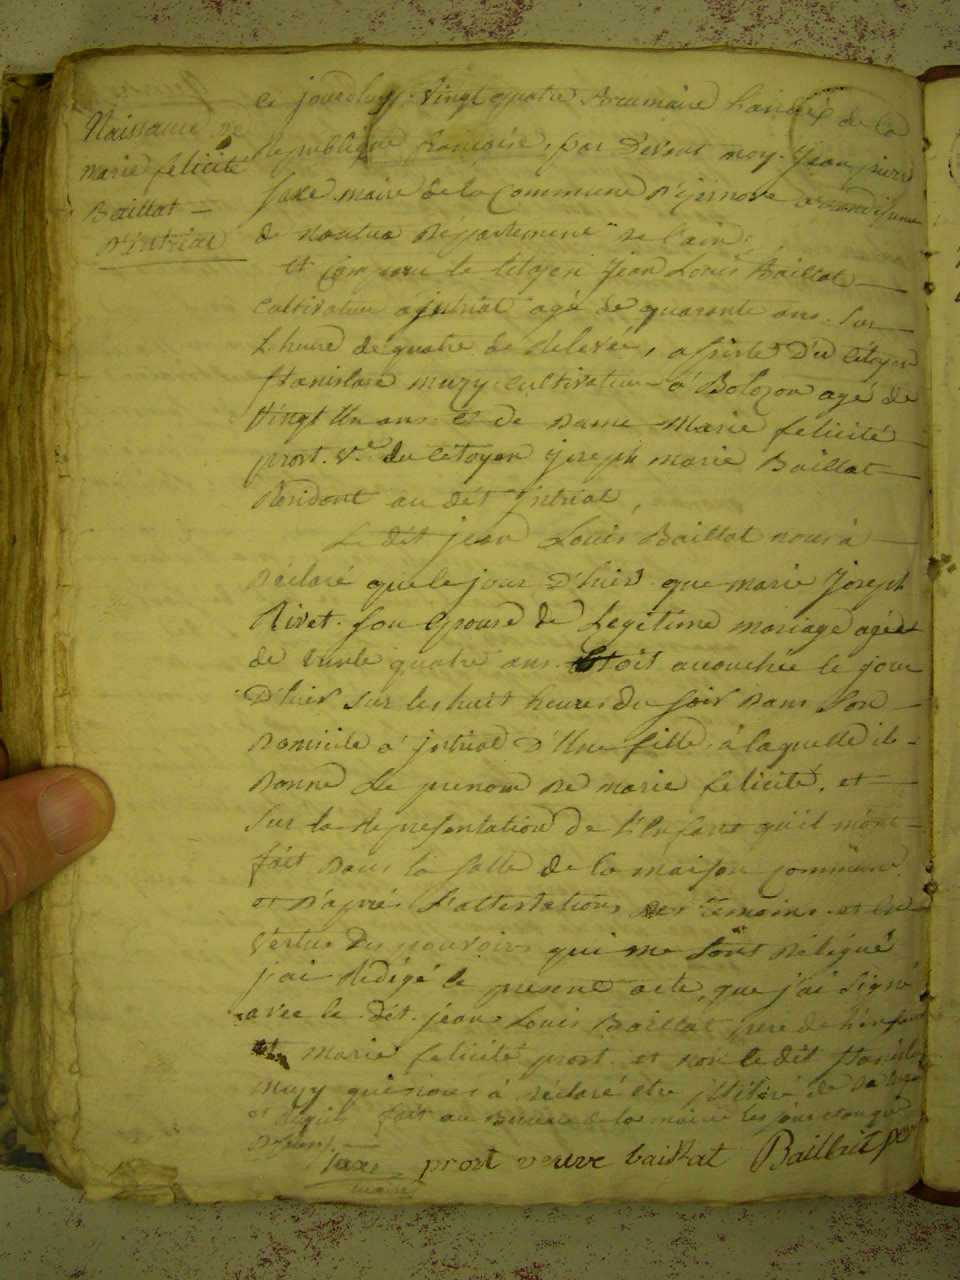 Naissance de
marie felicité
Baillat
D'intriat
ce jourdhuy vingt quatre Brumaire l'an dix de la
Republique francaise, par Devant moy Jean pierre
Saxe maire de la Commune D'izernore arrondissement
de nantua Département de l'ain
Et Comparu le Citoyen Jean Louis Baillat
Cultivateur a jntriat agé de quarante ans. Sur
L'heure de quatre de relevée, assisté D'u Citoyen
Stanislase muzy cultivateur a Bolozon agé de
Vingt Un ans et de Dame Marie felicité
prost Ve. du Citoyen Joseph marie Baillat
Residant au dét jntriat,
Le dét jean Louis Baillat nous à
Déclaré que le jour D'hier que marie Joseph
Rivet Son Epouse de Legitime mariage agée
de trente quatre ans Etoit accouchée le jour
D'hier sur les huit heures du Soir Dans Son
Domicile a jntriat D'Une fille, à laquelle il
Donne Le prenom De marie felicité, et
Sur la representation de l'Enfant qu'il m'ont
fait Dans la Salle de la maison Commune
et D'aprés L'attestations Des Temoins et En
Vertus Des pouvoirs qui me Sont Délégué
j'ai Rédigé le present acte, que j'ai Signé
avec le dét jean Louis Baillat pere de l'enfant
et marie felicité prost et non le dét Stanislas
muzy qui nous à déclaré etre jlliteré de ce
et requis fait au Bureau de la mairie les jour et an que
Dessus.
Saxe
maire
prost veuve baillat
Baillat per